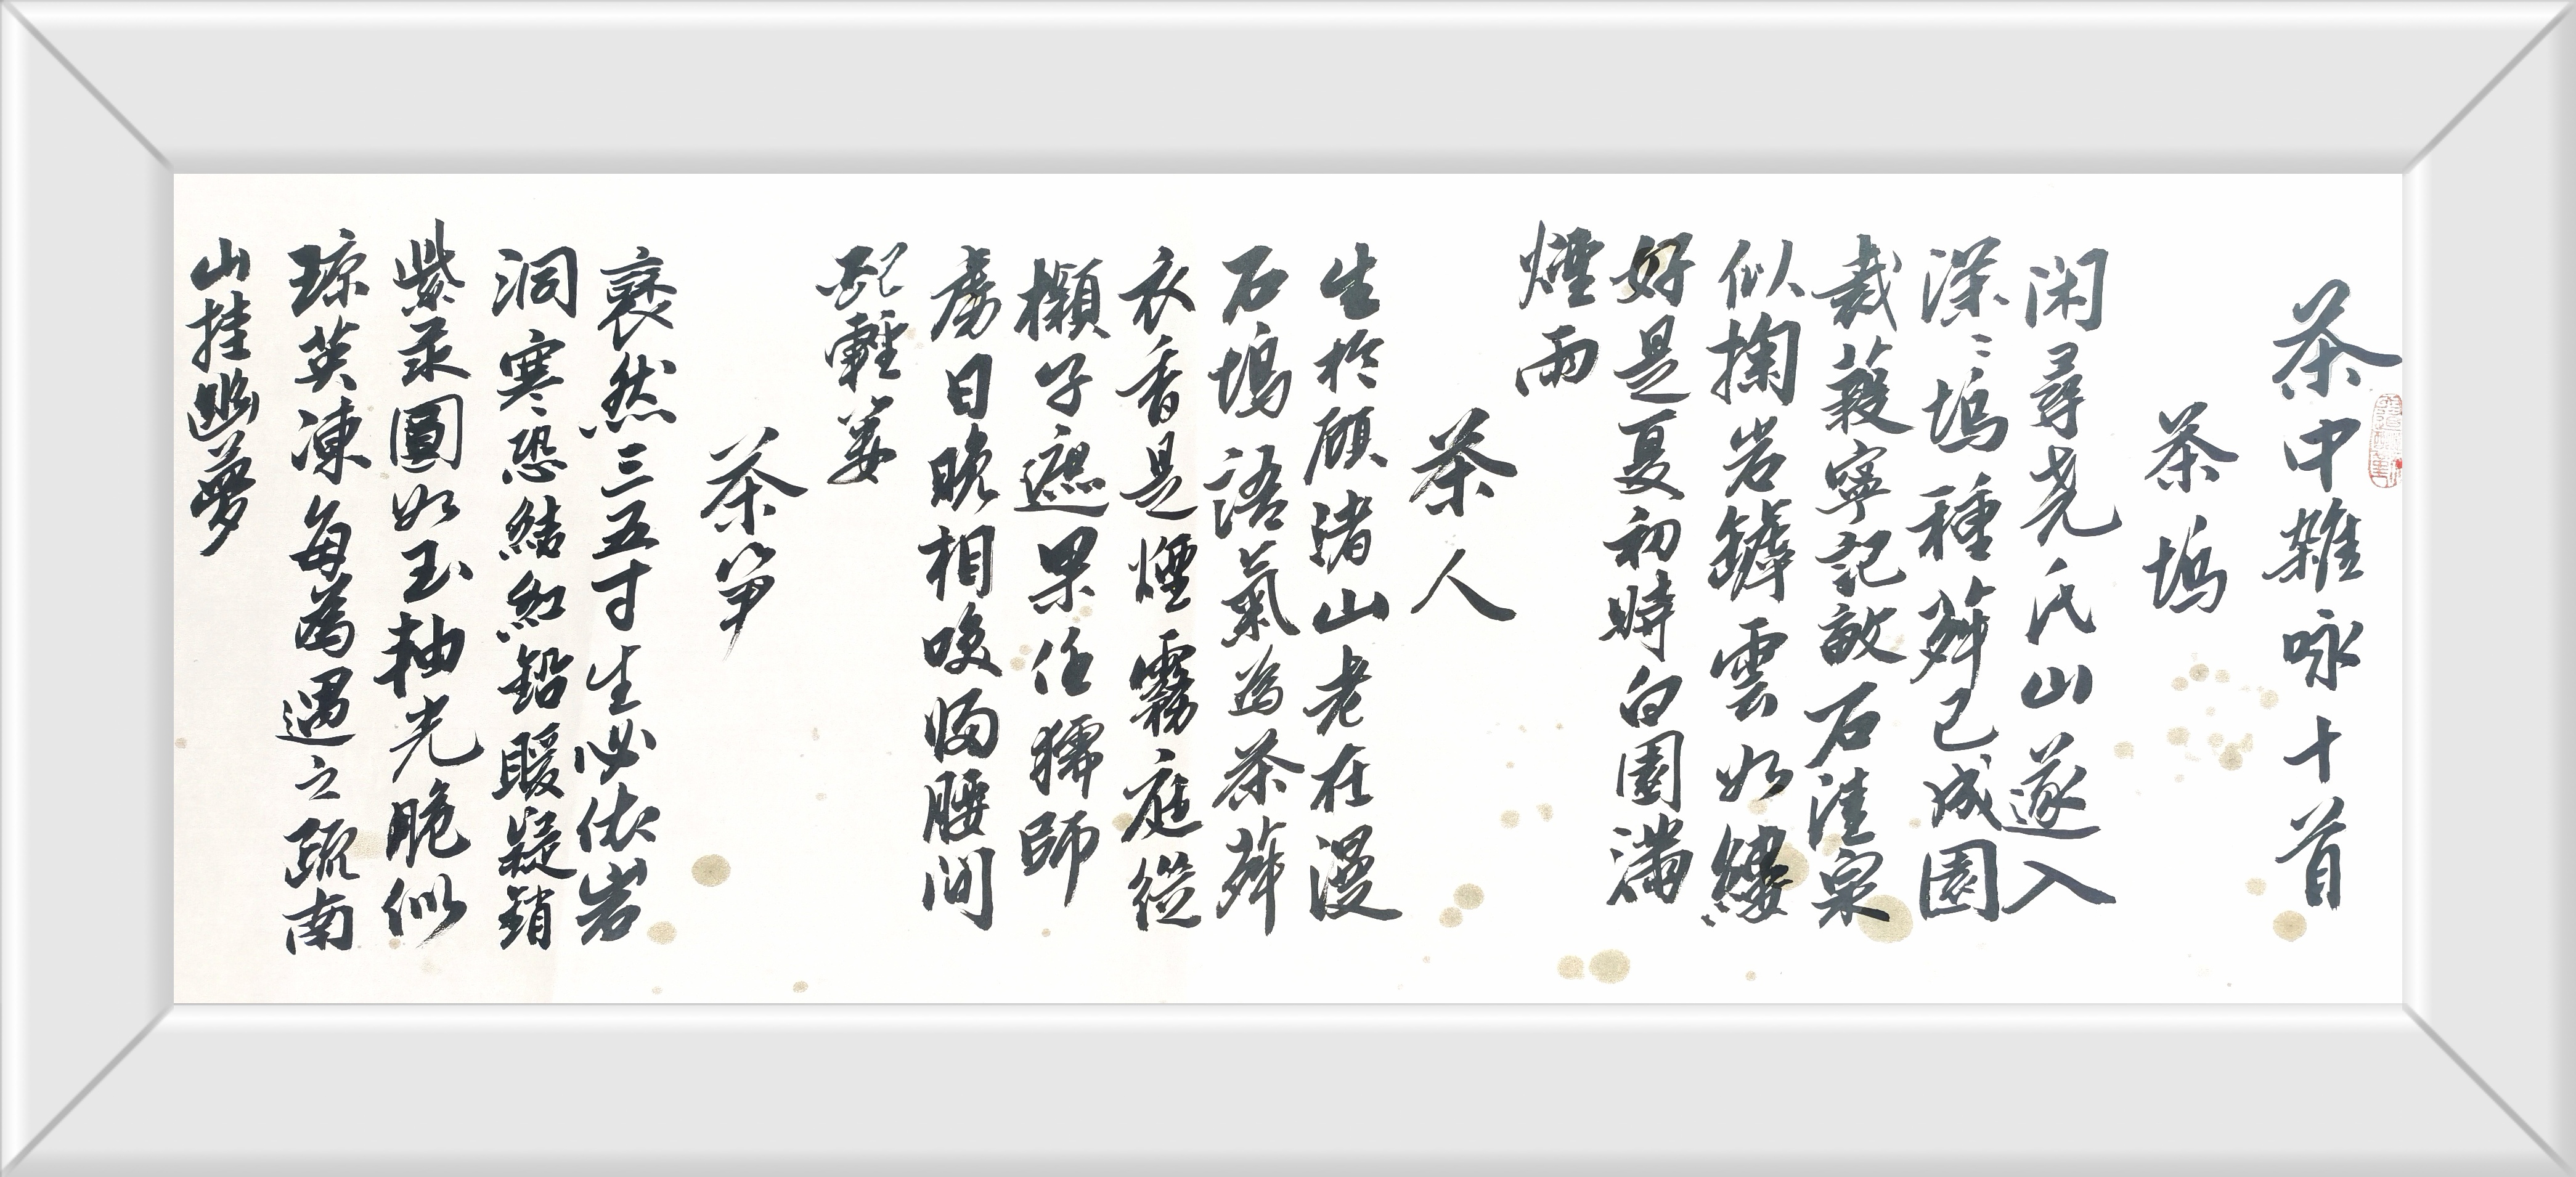 茶中雜咏十首
茶塢
闲尋尧氏山遂入
深〻塢種荈已成園
栽葭寧記畝石洼泉
似掬岩罅雲如縷
好是夏初時白園滿
煙雨
茶人
生於顧渚山老在漫
石塢語氣為茶荈
衣香是煙霧庭從
㰖子遮果任獳師
虜日晚相唆歸腰间
配輕蔞
茶笋
褎然三五寸生必依岩
洞寒恐結紅鉛暖疑銷
紫汞圓如玉軸光脆似
琼英凍每為遇之疏南
山挂幽夢